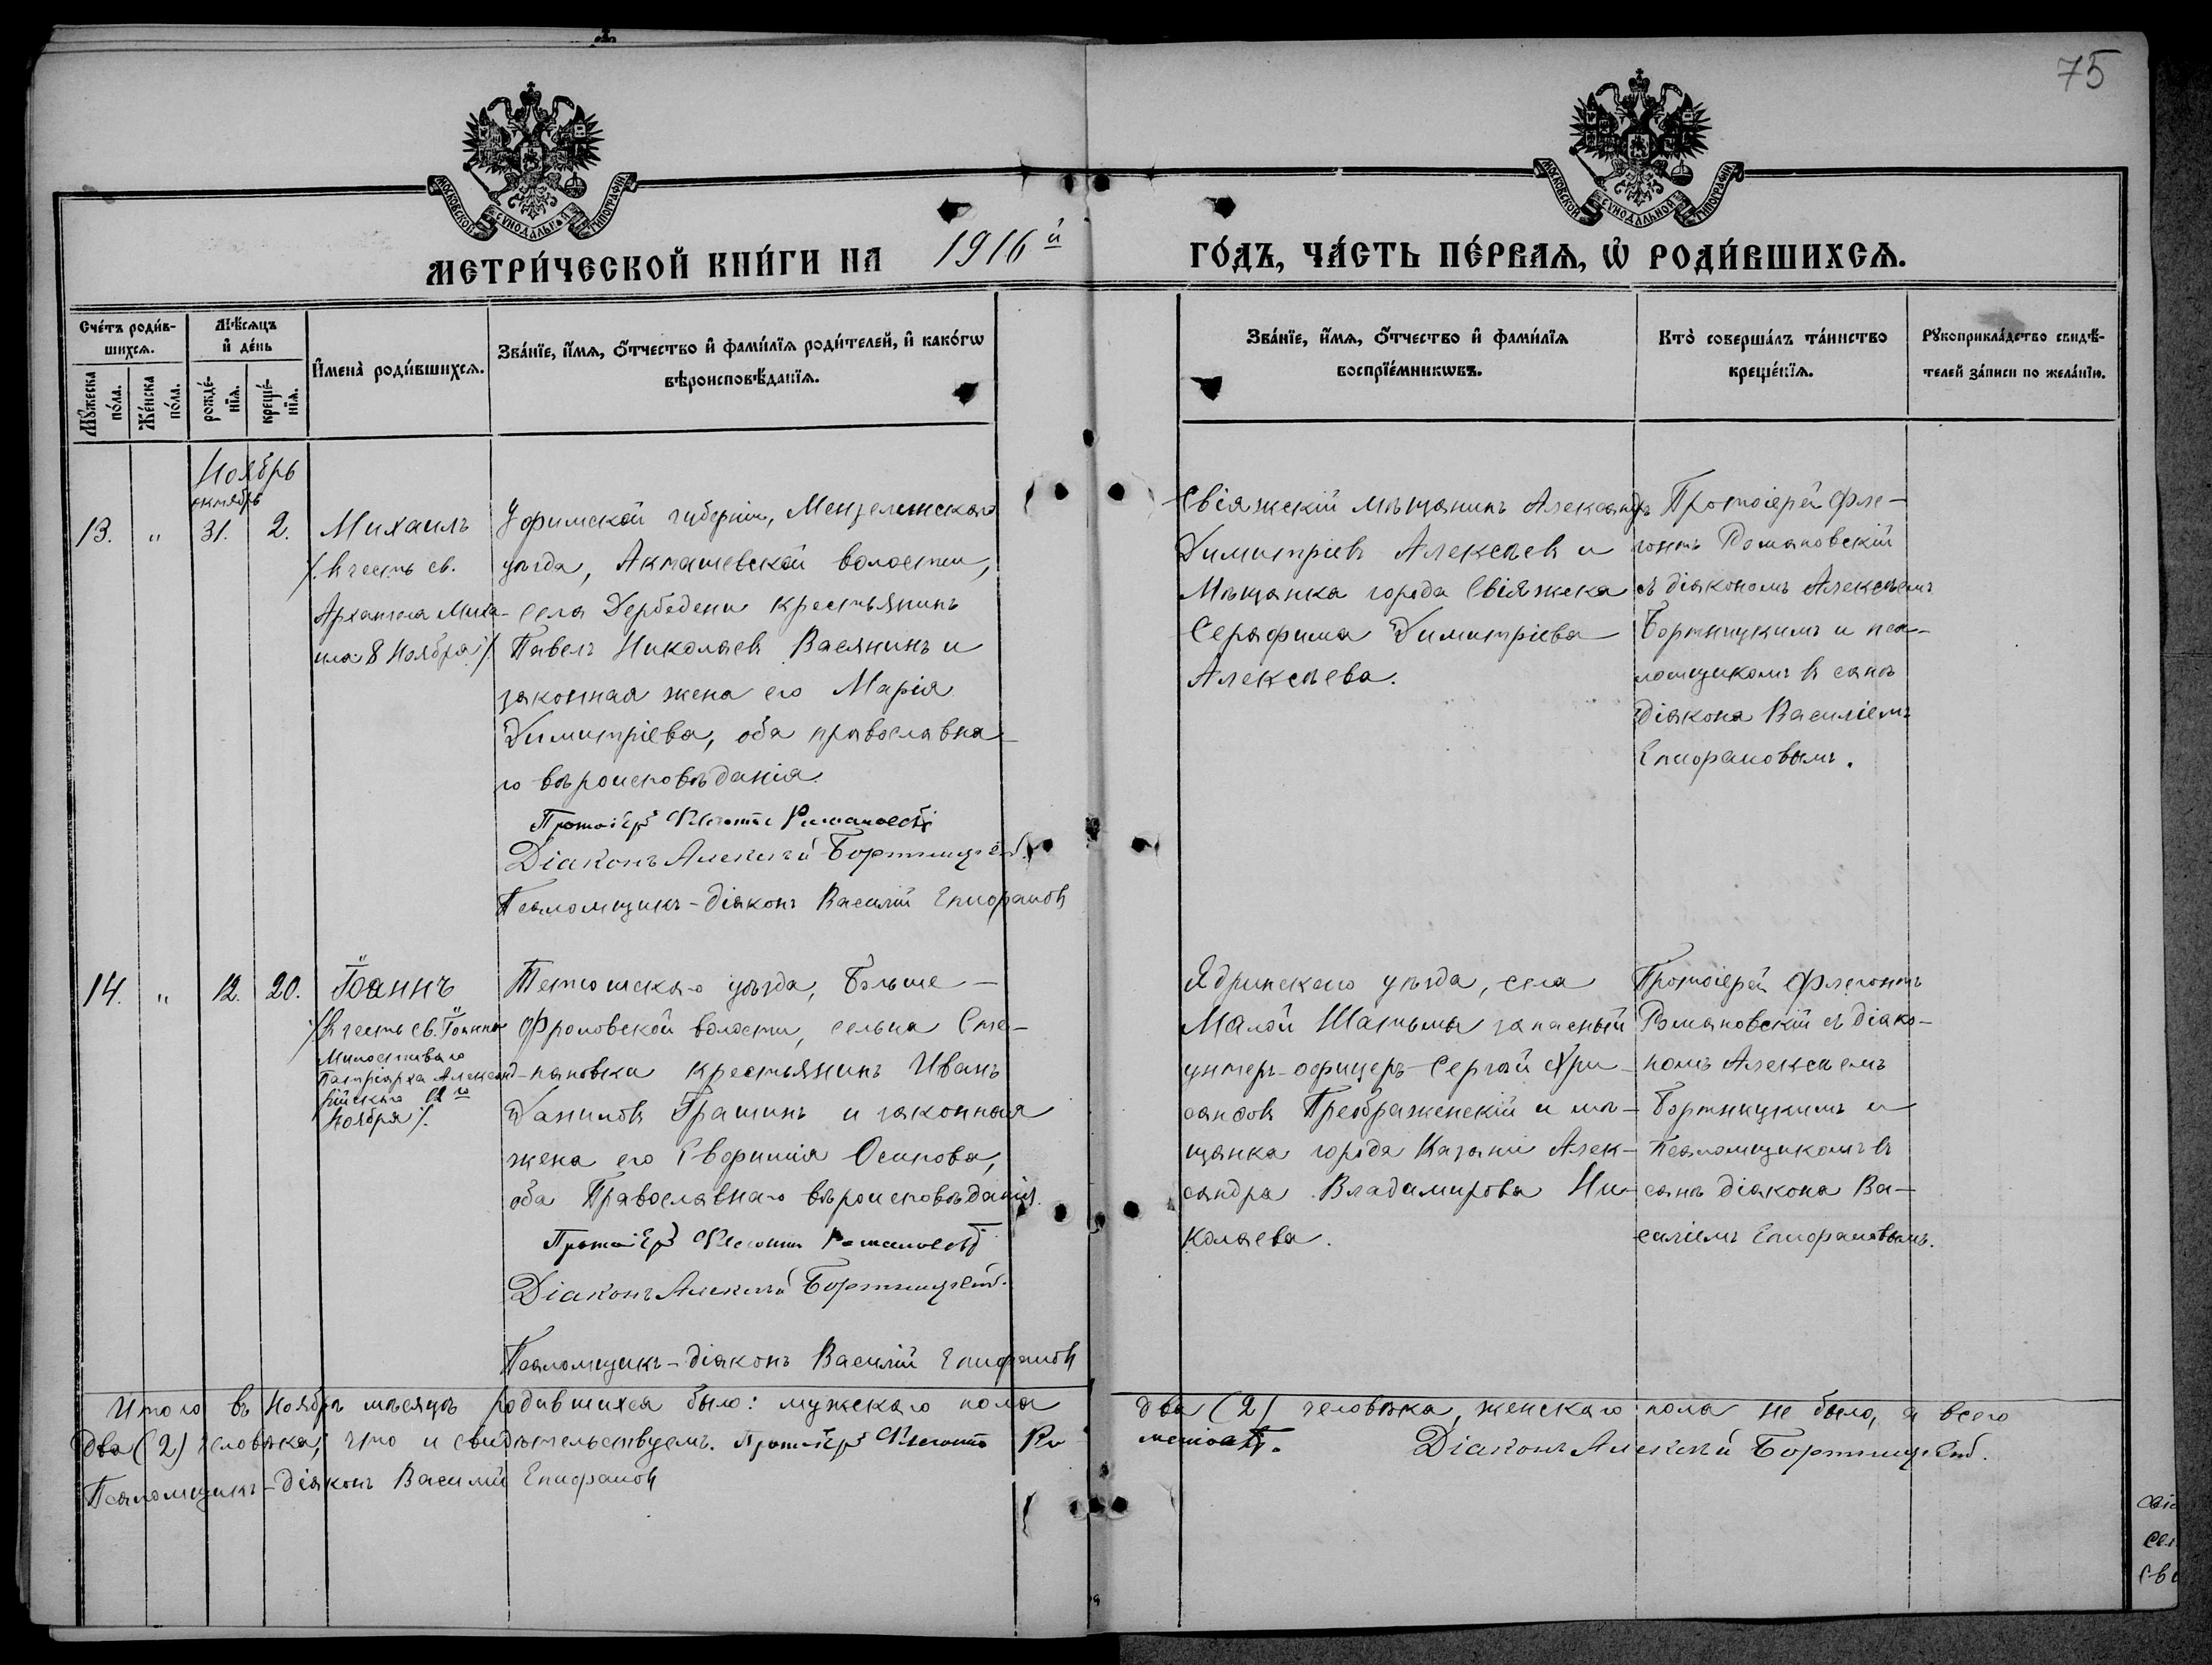 75
МОСКОВСКОЙ СѴНОДАЛЬНОЙ ТИПОГРАФІИ
МОСКОВСКОЙ СѴНОДАЛЬНОЙ ТИПОГРАФІИ
МЕТРИ́ЧЕСКОЙ КНИ́ГИ НА 1916й ГО́ДЪ, ЧА́СТЬ ПЕ́РВАѦ, Ѡ҆ РОДИ́ВШИХСѦ.
Счéтъ роди́в-
шихсѧ.
Мꙋ́жеска
по́ла.
Же́нска
по́ла.
Мѣ́сѧцъ
и҆ де́нь
рожде́-
нїѧ.
креще́-
нїѧ.
И҆мена̀ роди́вшихсѧ.
Зва́нїе, и҆́мѧ, ѻ҆́тчество и҆ фами́лїѧ роди́телей, и҆ како́гѡ
вѣроисповѣ́данїѧ.
Зва́нїе, и҆́мѧ, ѻ҆́тчество и҆ фами́лїѧ
воспрїе́мникѡвъ.
Кто̀ соверша́лъ та́инство
креще́нїѧ.
Рꙋкоприкла́дство свидѣ́-
телей за́писи по жела́нїю.
Ноябрь
октябрь
13.
"
31.
2.
Михаилъ
/. въ честь св.
Архангела Миха-
ила 8 Ноября /.
Уфимской губерніи, Мензелинскаго
уѣзда, Акташевской волости,
села Дербедени крестьянинъ
Павелъ Николаевъ Васянинъ и
законная жена его Марія
Димитріева, оба православна-
го вѣроисповѣданія.
Протоіерей Флегонтъ Романовскій
Діаконъ Алексѣй Бортницкій.
Псаломщикъ-діаконъ Василій Епифановъ
Свіяжскій мѣщанинъ Александръ
Димитріевъ Алексѣевъ и
Мѣщанка города Свіяжска
Серафима Димитріева
Алексѣева.
Протоіерей Фле-
гонтъ Романовскій
съ діакономъ Алексѣемъ
Бортницкимъ и пса-
ломщикомъ въ санѣ
діакона Василіемъ
Епифановымъ.
14.
"
12.
20.
Іоаннъ
/. въ честь св. Іоанна
Милостиваго
Патріарха Александ-
рійскаго 12го
Ноября /.
Тетюшскаго уѣзда, Больше-
Фроловской волости, сельца Сте-
пановки крестьянинъ Иванъ
Даниловъ Грашинъ и законная
жена его Евфимія Осипова,
оба Православнаго вѣроисповѣданія.
Протоіерей Флегонтъ Романовскій
Діаконъ Алексѣй Бортницкій.
Псаломщикъ-діаконъ Василій Епифановъ
Ядринскаго уѣзда, села
Малой Шатьмы запасный
унтеръ-офицеръ Сергѣй Хри-
санфовъ Преображенскій и мѣ-
щанка города Казани Алек-
сандра Владимирова Ни-
колаева.
Протоіерей Флегонтъ
Романовскій съ діако-
номъ Алексѣемъ
Бортницкимъ и
псаломщикомъ въ
санѣ діакона Ва-
силіемъ Епифановымъ.
Итого въ Ноябрѣ мѣсяцѣ родившихся было: мужскаго пола два (2) человѣка, женскаго пола не было, а всего
два (2) человѣка, что и свидѣтельствуемъ. Протоіерей Флегонтъ Романовскій. Діаконъ Алексѣй Бортницкій.
Псаломщикъ-діаконъ Василій Епифановъ